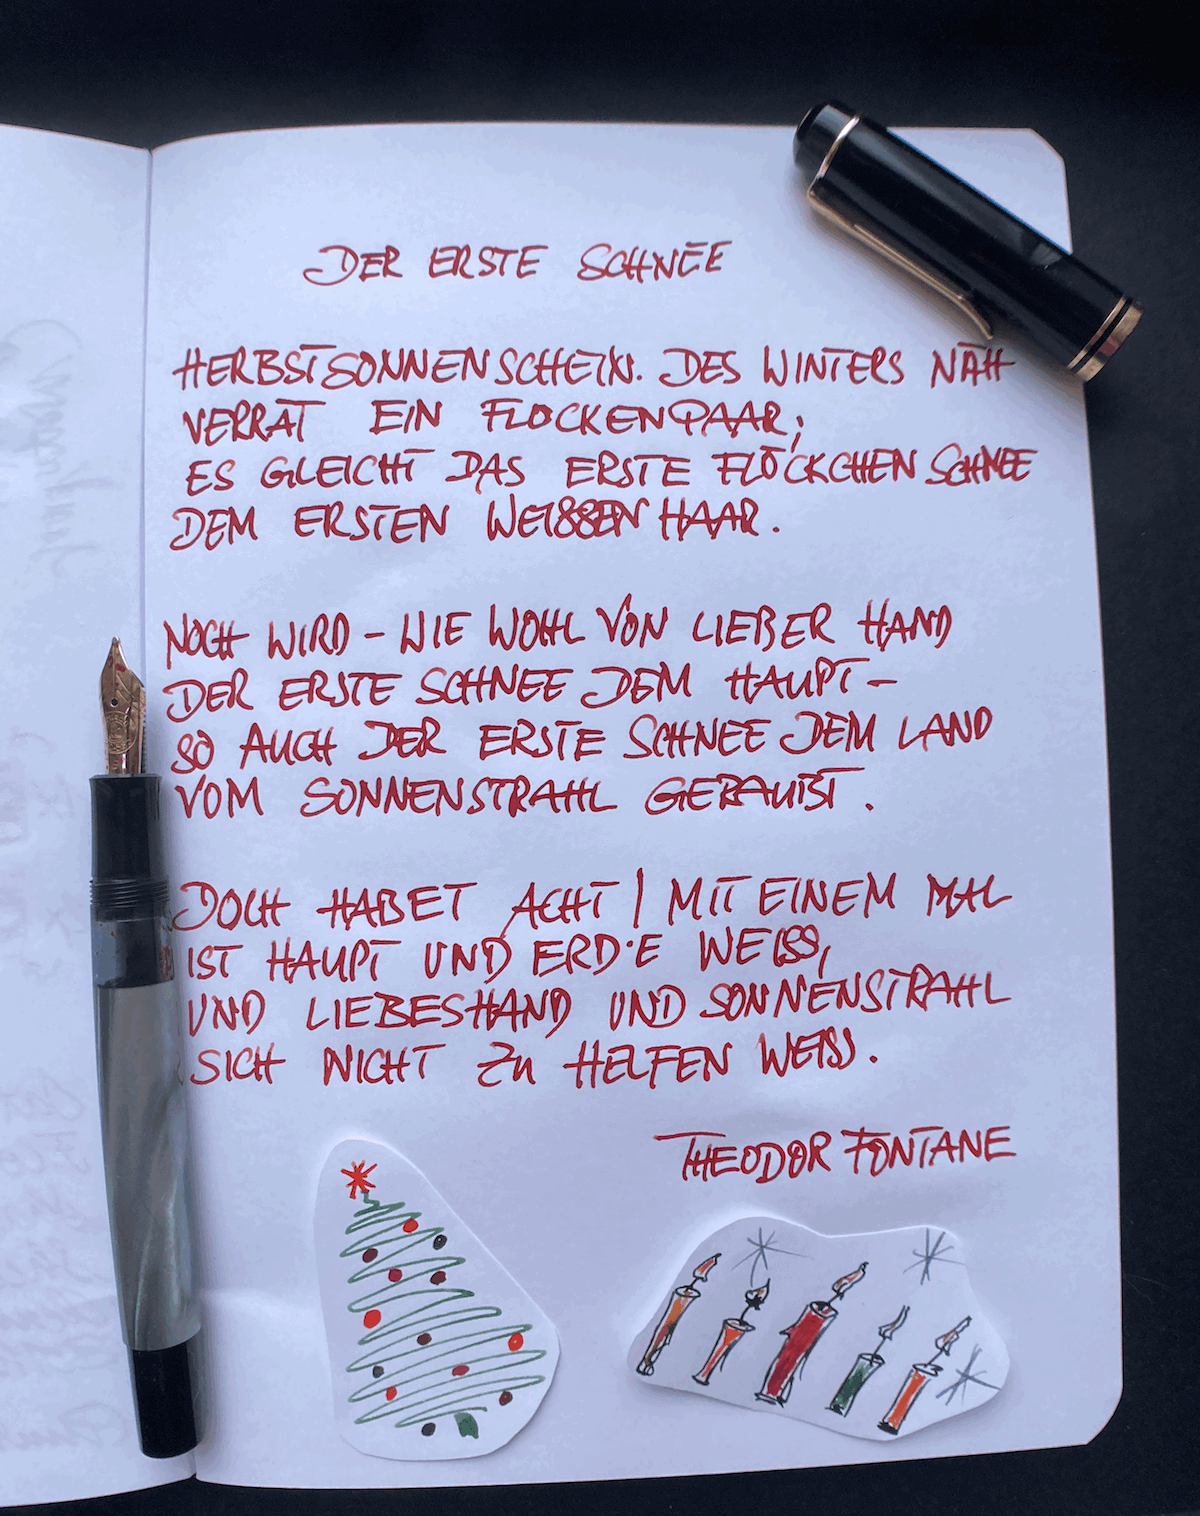 DER ERSTE SCHNEE
HERBSTSONNENSCHEIN. DES WINTERS NÄH
VERRAT EIN FLOCKENPAAR;
ES GLEICHT DAS ERSTE FLÖCKCHEN SCHNEE
DEM ERSTEN WEISSEN HAAR.
NOCH WIRD – WIE WOHL VON LIEBER HAND
DER ERSTE SCHNEE DEM HAUPT –
SO AUCH DER ERSTE SCHNEE DEM LAND
VOM SONNENSTRAHL GERAUBT.
DOCH HABET ACHT! MIT EINEM MAL
IST HAUPT UND ERDE WEISS,
UND LIEBESHAND UND SONNENSTRAHL
SICH NICHT ZU HELFEN WEISS.
THEODOR FONTANE